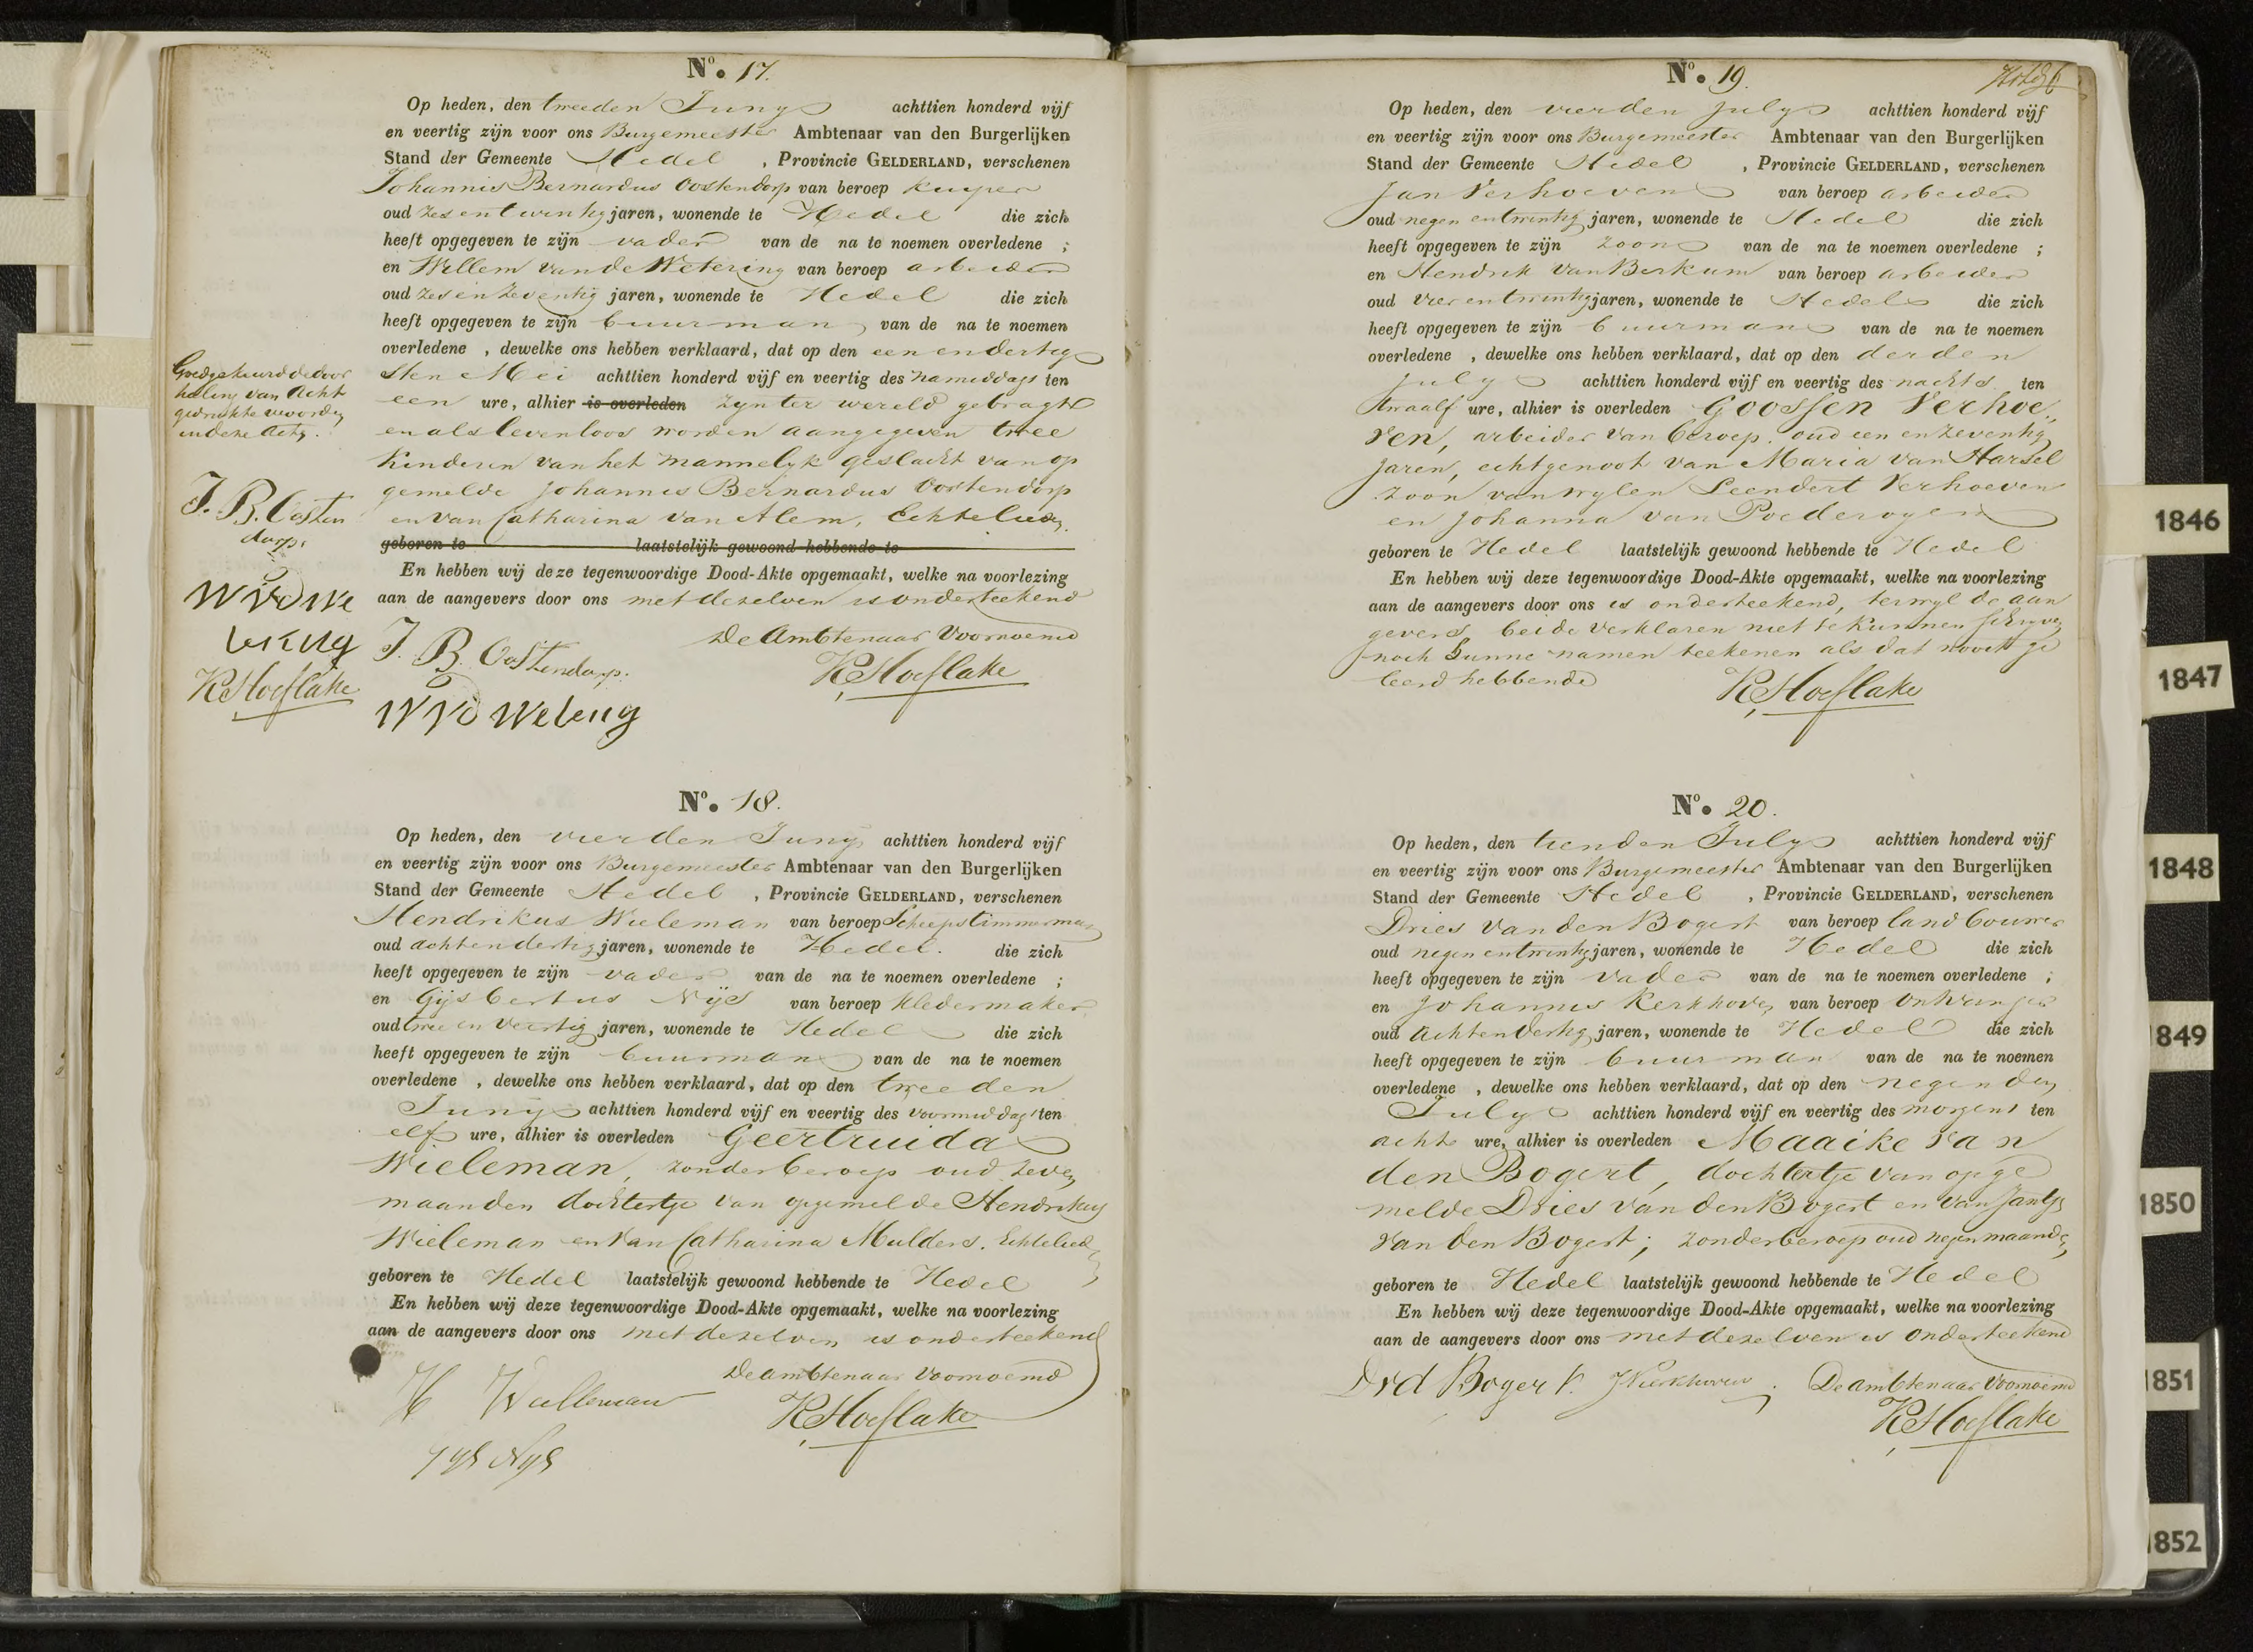 No. 17.
Op heden, den tweeden Juny achttien honderd vijf
en veertig zijn voor ons Burgemeester Ambtenaar van den Burgerlijken
Stand der Gemeente Hedel , Provincie GELDERLAND, verschenen
Johannis Bernardus Oostendorp van beroep kuyper
oud zes en twintig jaren, wonende te Hedel die zich
heeft opgegeven te zijn vader van de na te noemen overledene ;
en Willem van de Wetering van beroep arbeider
oud zes en zeventig jaren, wonende te Hedel die zich
heeft opgegeven te zijn buurman van de na te noemen
overledene , dewelke ons hebben verklaard, dat op den een en dertig
sten Mei achttien honderd vijf en veertig des namiddags ten
een ure, alhier is overleden zyn ter wereld gebragt
en als levenloos worden aangegeven twee
Kinderen van het mannelyk geslacht van op
gemelde Johannes Bernardus Oostendorp
en van Catharina van Alem, Echtelieden.
geboren te laatstelijk gewoond hebbende te
En hebben wij deze tegenwoordige Dood-Akte opgemaakt, welke na voorlezing
aan de aangevers door ons met dezelven is onderteekend
De Ambtenaar Voornoemd
J. B. Oostendorp.
K Hoeflake
W VD Weteng
Goedgekeurd de door
haling van Acht
gedrukte woorden
in deze Acte.
J. B. Oosten
dorp.
W VD We
tering
K Hoeflake
No. 18.
Op heden, den vierden Juny achttien honderd vijf
en veertig zijn voor ons Burgemeester Ambtenaar van den Burgerlijken
Stand der Gemeente Hedel , Provincie GELDERLAND, verschenen
Hendrikus Wieleman van beroep Scheepstimmerman
oud acht en dertig jaren, wonende te Hedel. die zich
heeft opgegeven te zijn vader van de na te noemen overledene ;
en Gijsbertus Nijs van beroep kledermaker
oud twee en veertig jaren, wonende te Hedel die zich
heeft opgegeven te zijn buurman van de na te noemen
overledene , dewelke ons hebben verklaard, dat op den tweeden
Juny achttien honderd vijf en veertig des voormiddags ten
elf ure, alhier is overleden Geertruida
Wieleman, zonder beroep oud zeven
maanden dochtertje van opgemelde Hendrikus
Wieleman en van Catharina Mulders. Echtelieden
geboren te Hedel laatstelijk gewoond hebbende te Hedel
En hebben wij deze tegenwoordige Dood-Akte opgemaakt, welke na voorlezing
aan de aangevers door ons met dezelven is onderteekend
De ambtenaar voornoemd
H Wulleman
K Hoeflake
Gys Nys
No. 19.
Op heden, den vierden July achttien honderd vijf
en veertig zijn voor ons Burgemeester Ambtenaar van den Burgerlijken
Stand der Gemeente Hedel , Provincie GELDERLAND, verschenen
Jan Verhoeven van beroep arbeider
oud negen en twintig jaren, wonende te Hedel die zich
heeft opgegeven te zijn zoon van de na te noemen overledene ;
en Hendrik van Berkum van beroep arbeider
oud vier en twintig jaren, wonende te Hedel die zich
heeft opgegeven te zijn buurman van de na te noemen
overledene , dewelke ons hebben verklaard, dat op den derden
July achttien honderd vijf en veertig des nachts ten
twaalf ure, alhier is overleden Goossen Verhoe"
ven, arbeider van beroep. oud een en zeventig
jaren, echtgenoot van Maria van Harsel
zoon van wylen Leendert Verhoeven
en Johanna van Poederoyen
geboren te Hedel laatstelijk gewoond hebbende te Hedel
En hebben wij deze tegenwoordige Dood-Akte opgemaakt, welke na voorlezing
aan de aangevers door ons is onderteekend, terwyl de aan
gevers beide verklaren niet te kunnen schryven
noch hunne namen teekenen als dat nooit ge
leerd hebbende
K Hoeflake
No. 20.
Op heden, den tienden July achttien honderd vijf
en veertig zijn voor ons Burgemeester Ambtenaar van den Burgerlijken
Stand der Gemeente Hedel , Provincie GELDERLAND, verschenen
Dries van den Bogert van beroep landbouwer
oud negen en twintig jaren, wonende te Hedel die zich
heeft opgegeven te zijn vader van de na te noemen overledene ;
en Johannes Kerkhoven van beroep ontvanger
oud acht en dertig jaren, wonende te Hedel die zich
heeft opgegeven te zijn buurman van de na te noemen
overledene , dewelke ons hebben verklaard, dat op den negenden
July achttien honderd vijf en veertig des morgens ten
acht ure, alhier is overleden Maaike van
den Bogert, dochtertje van opge
melde Dries van den Bogert en van Jantje
van den Bogert; zonder beroep oud negen maanden
geboren te Hedel laatstelijk gewoond hebbende te Hedel
En hebben wij deze tegenwoordige Dood-Akte opgemaakt, welke na voorlezing
aan de aangevers door ons met dezelven is onderteekend
D v d Bogert. J Kerkhoven. De ambtenaar voornoemd
K Hoeflake
1846
1847
1848
1849
1850
1851
1852